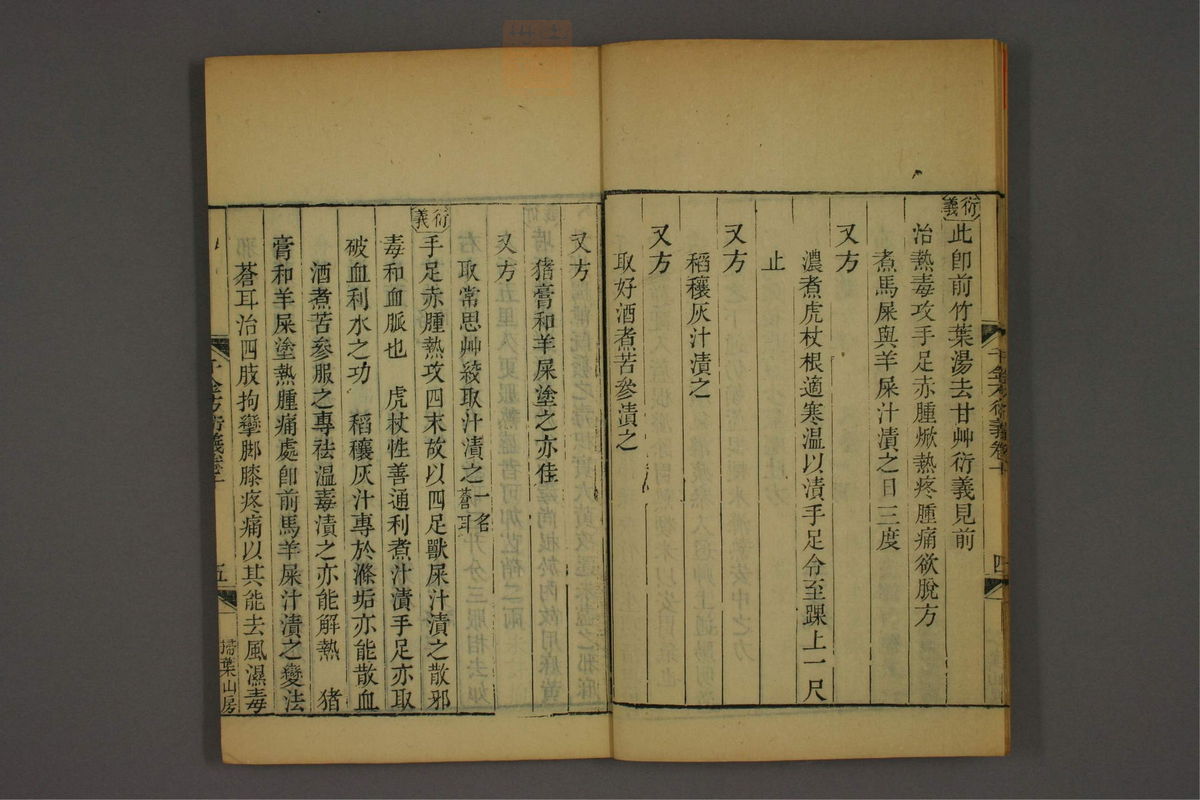 衍義
此卽前竹葉湯去甘艸衍義見前
治熱毒攻手足赤腫焮熱疼腫痛欲脫方
煮馬屎與羊屎汁漬之日三度
又方
濃煮虎杖根適寒温以漬手足令至踝上一尺
止
又方
稻穰灰汁漬之
又方
取好酒煮苦參漬之
又方
猪膏和羊屎塗之亦佳
又方
取常思艸絞取汁漬之一名蒼耳
衍義
手足赤腫熱攻四末故以四足獸屎汁漬之散邪
毒和血脈也 虎杖性善通利煮汁漬手足亦取
破血利水之功 稻穰灰汁專於滌垢亦能散血
酒煮苦參服之專祛温毒漬之亦能解熱 猪
膏和羊屎塗熱腫痛處卽前馬羊屎汁漬之變法
蒼耳治四肢拘攣脚膝疼痛以其能去風濕毒
千金方衍義卷十
四
千金方衍義卷十
五
掃葉山房